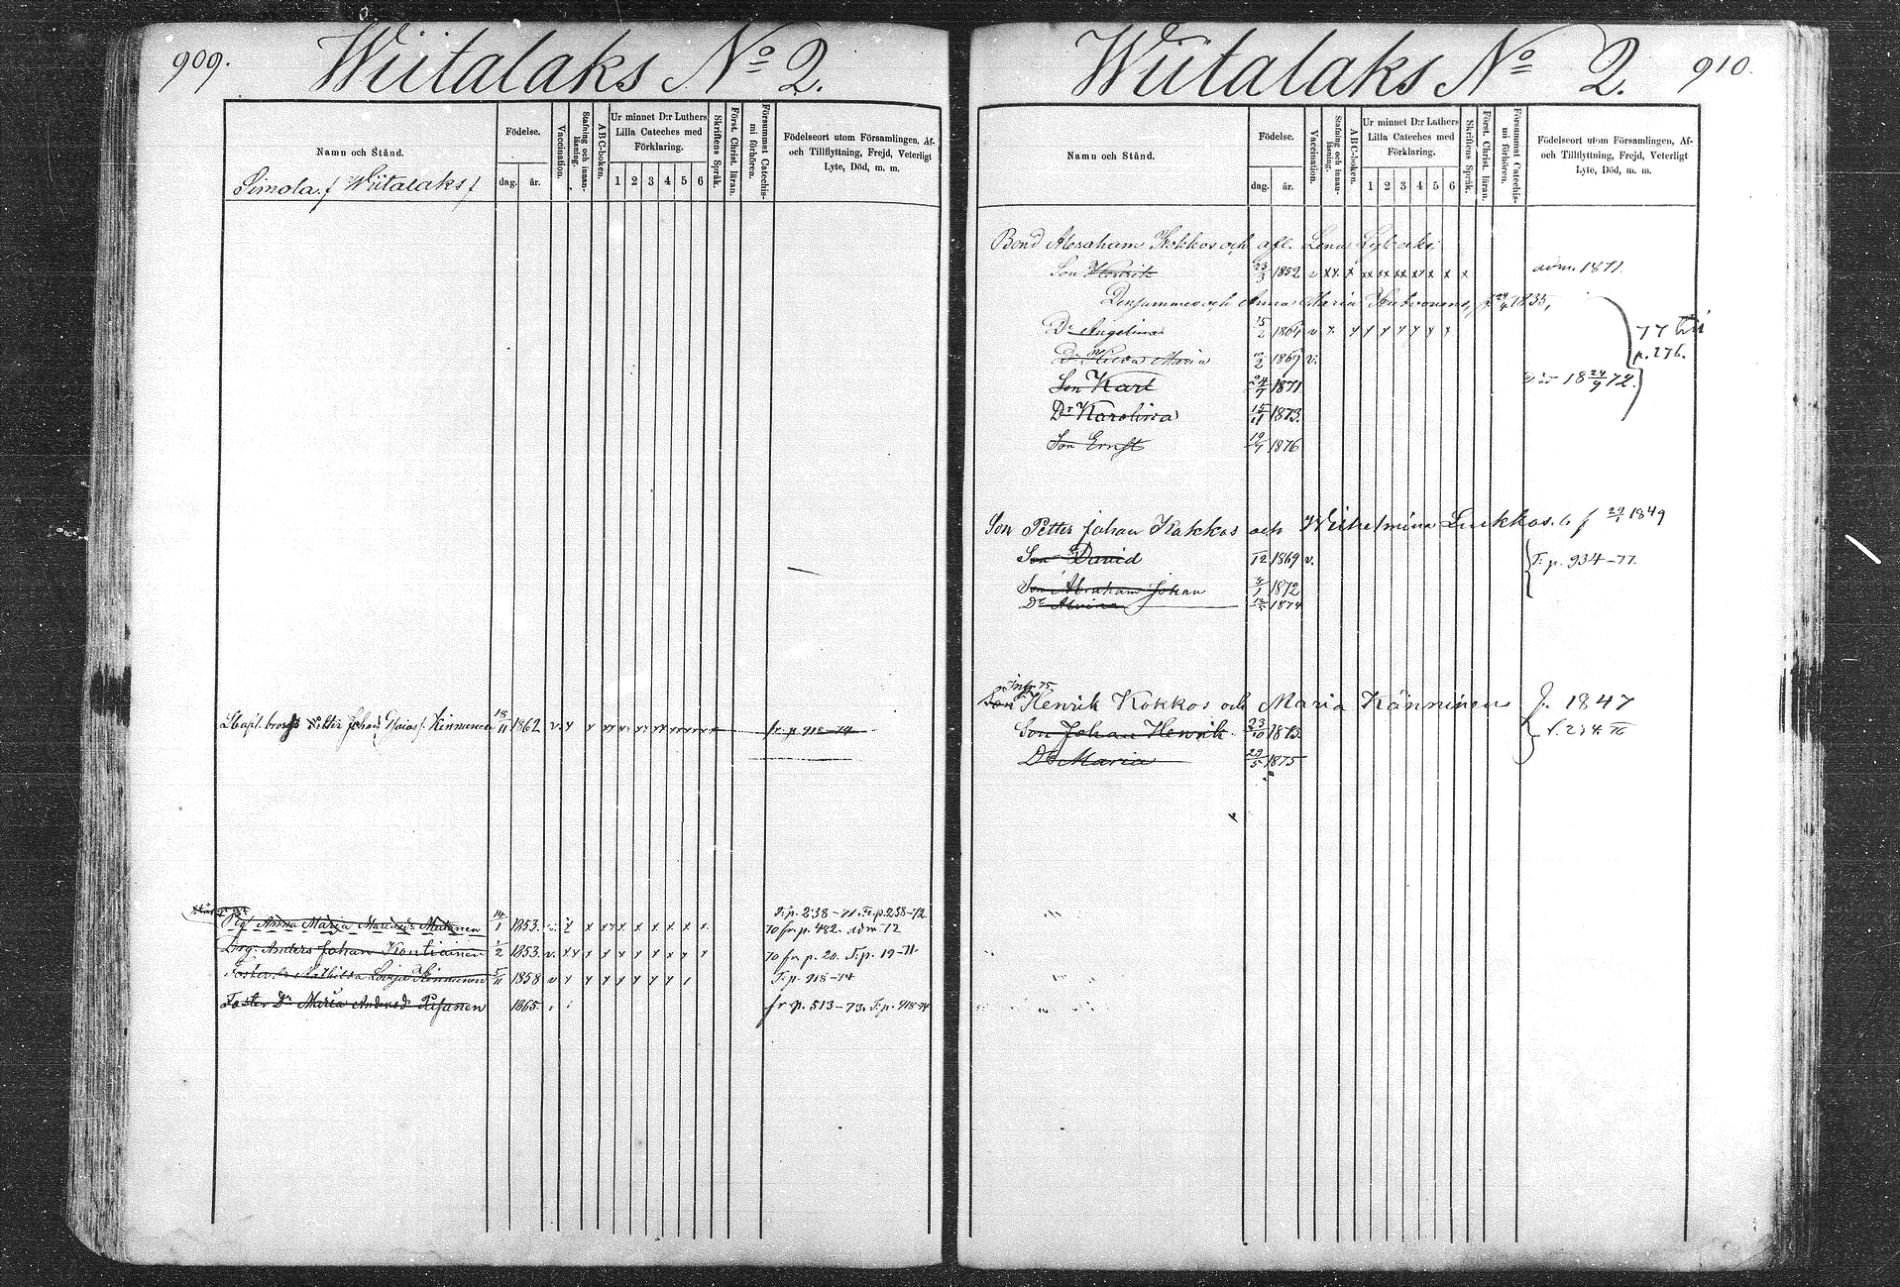 909.
Wiitalaks No 2.
Namn och Stånd.
Födelse.
dag.
år.
Vaccination.
Stafning och innan-läsning.
A B C-boken.
Ur minnet D:r Luthers
Lilla Cateches med
Förklaring.
1 2 3 4 5 6
Skriftens Språk.
Först. Christ. läran.
Försummat Catechis-mi förhören.
Födelseort utom Församlingen, Af-
och Tillflyttning, Frejd, Veterligt
Lyte, Död, m. m.
Simola / Wiitalaks /
Johan Kinnunen 18/11 1862 v fr. p. 918-74
T. p. 238-71. Fr. p. 238-72.
Anna Maria Mutanen 14/1 1853. 70 fr p. 482. adm. 72
Drg. Anders Johan Kontiainen 1/2 1853 v. 70 fr p. 20. T. p. 19-71.
Foster dr Mathilda Kinnunen 5/11 1858 v T. p. 918-74
Foster Dr Maria Andersdr Pesanen 1865. fr p. 513-73. T. p. 918-74
Wiitalaks No 2.
910.
Namn och Stånd.
Födelse.
dag.
år.
Vaccination.
Stafning och innan-läsning.
A B C-boken.
Ur minnet D:r Luthers
Lilla Cateches med
Förklaring.
1 2 3 4 5 6
Skriftens Språk.
Först. Christ. läran.
Försummat Catechis-mi förhören.
Födelseort utom Församlingen, Af-
och Tillflyttning, Frejd, Veterligt
Lyte, Död, m. m.
Bond Abraham Kokkos och afl. Lena
Son Henrik 23/3 1852 v xx x xx xx xx xx x x x adm. 1871.
Densammes och Anna Maria 1835,
Dr Angelina 15/2 1864 v 77
Maria 1867 v. p. 276.
Son Karl 24/7 1871 död 18 24/9 72.
Dr Karolina 15/11 1873.
Son Ernst 19/4 1876
Son Petter Johan Kokkos och Wilhelmina Lukkos. f 1849
Son David 12 1869 v. T. p. 934-77.
Son Abraham Johan 1872
Dr Alvina 1874
Son Henrik Kokkos och Maria Känninen f. 1847
Son Johan Henrik 23/10 1873
Dr Maria 29/5 1875